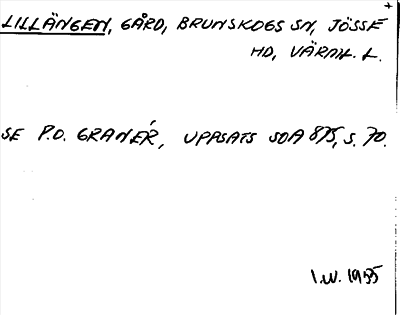 LILLÄNGEN, GÅRD, BRUNSKOGS SN, JÖSSE
HD, VÄRML. L.
SE P.O. GRANÉR, UPPSATS SOA 875, S. 70.
I.W. 1955